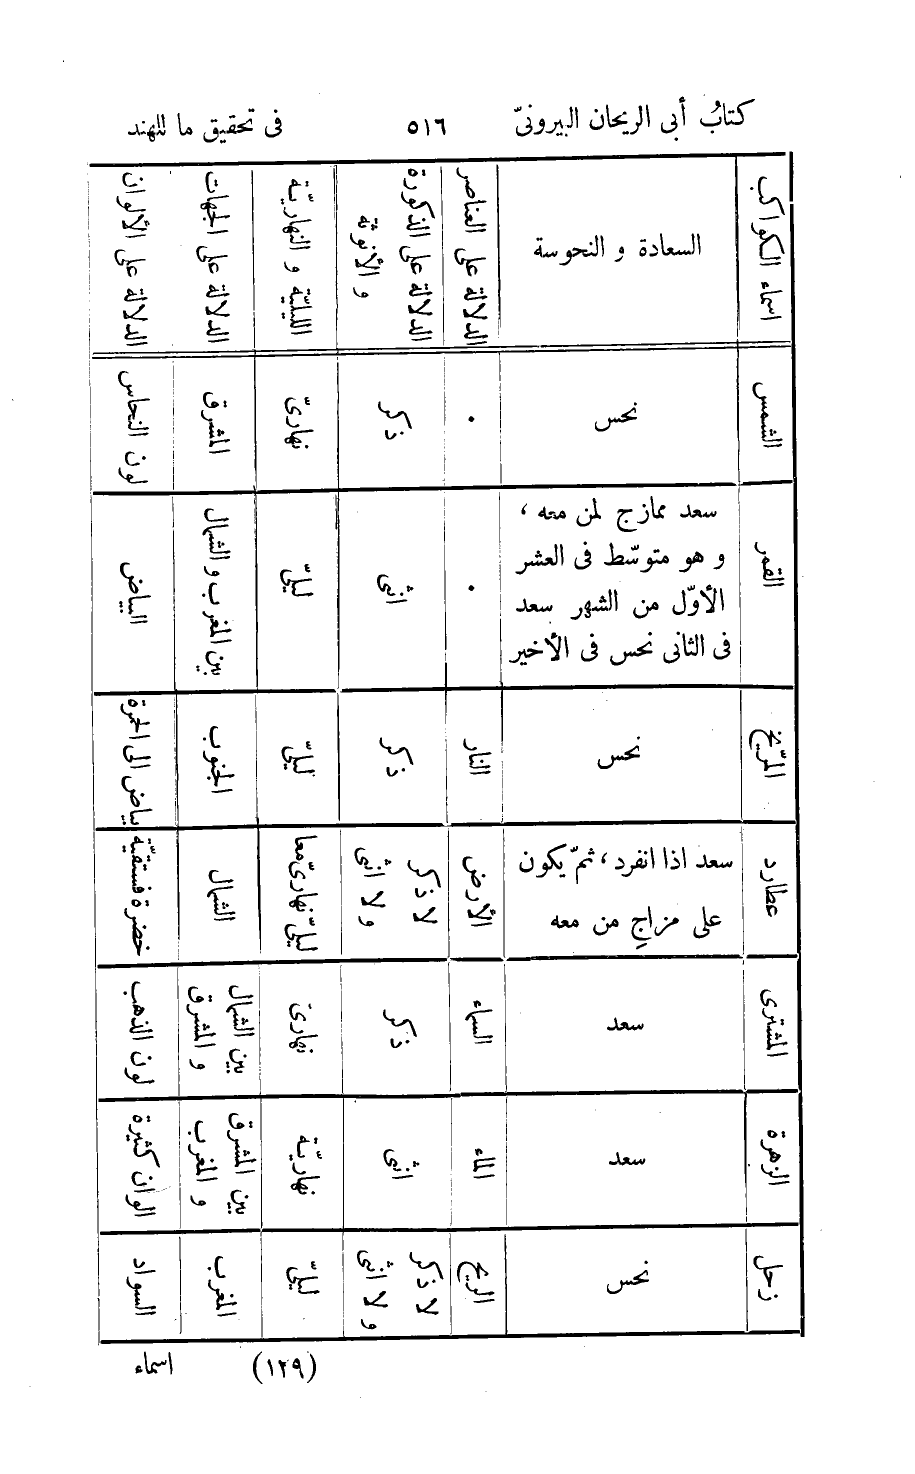 كتابُ أبى الريحان البيرونىّ ٥١٦ فى تحقيق ما للهند
اسماء الكواكب | السعادة و النحوسة | الدلالة على العناصر | الدلالة على الذكورة و الأنوثة | الليليّة و النهاريّة | الدلالة على الجهات | الدلالة على الألوان
الشمس | نحس | ٠ | ذكر | نهارىّ | المشرق | لون النحاس
القمر | سعد ممازج لمن معه ، و هو متوسّط فى العشر الأوّل من الشهر سعد فى الثانى نحس فى الأخير | ٠ | انثى | ليلىّ | بين المغرب و الشمال | البياض
المرّيخ | نحس | النار | ذكر | ليلىّ | الجنوب | بياض الى الحمرة
عطارد | سعد اذا انفرد ، ثمّ يكون على مزاجِ من معه | الأرض | لا ذكر و لا انثى | ليلىّ نهارىّ معا | الشمال | خضرة فستقيّة
المشترى | سعد | السماء | ذكر | نهارى | بين الشمال و المشرق | لون الذهب
الزهرة | سعد | الماء | انثى | نهاريّة | بين المشرق و المغرب | الوان كثيرة
زحل | نحس | الريح | لا ذكر و لا انثى | ليلىّ | المغرب | السواد
(١٢٩) اسماء